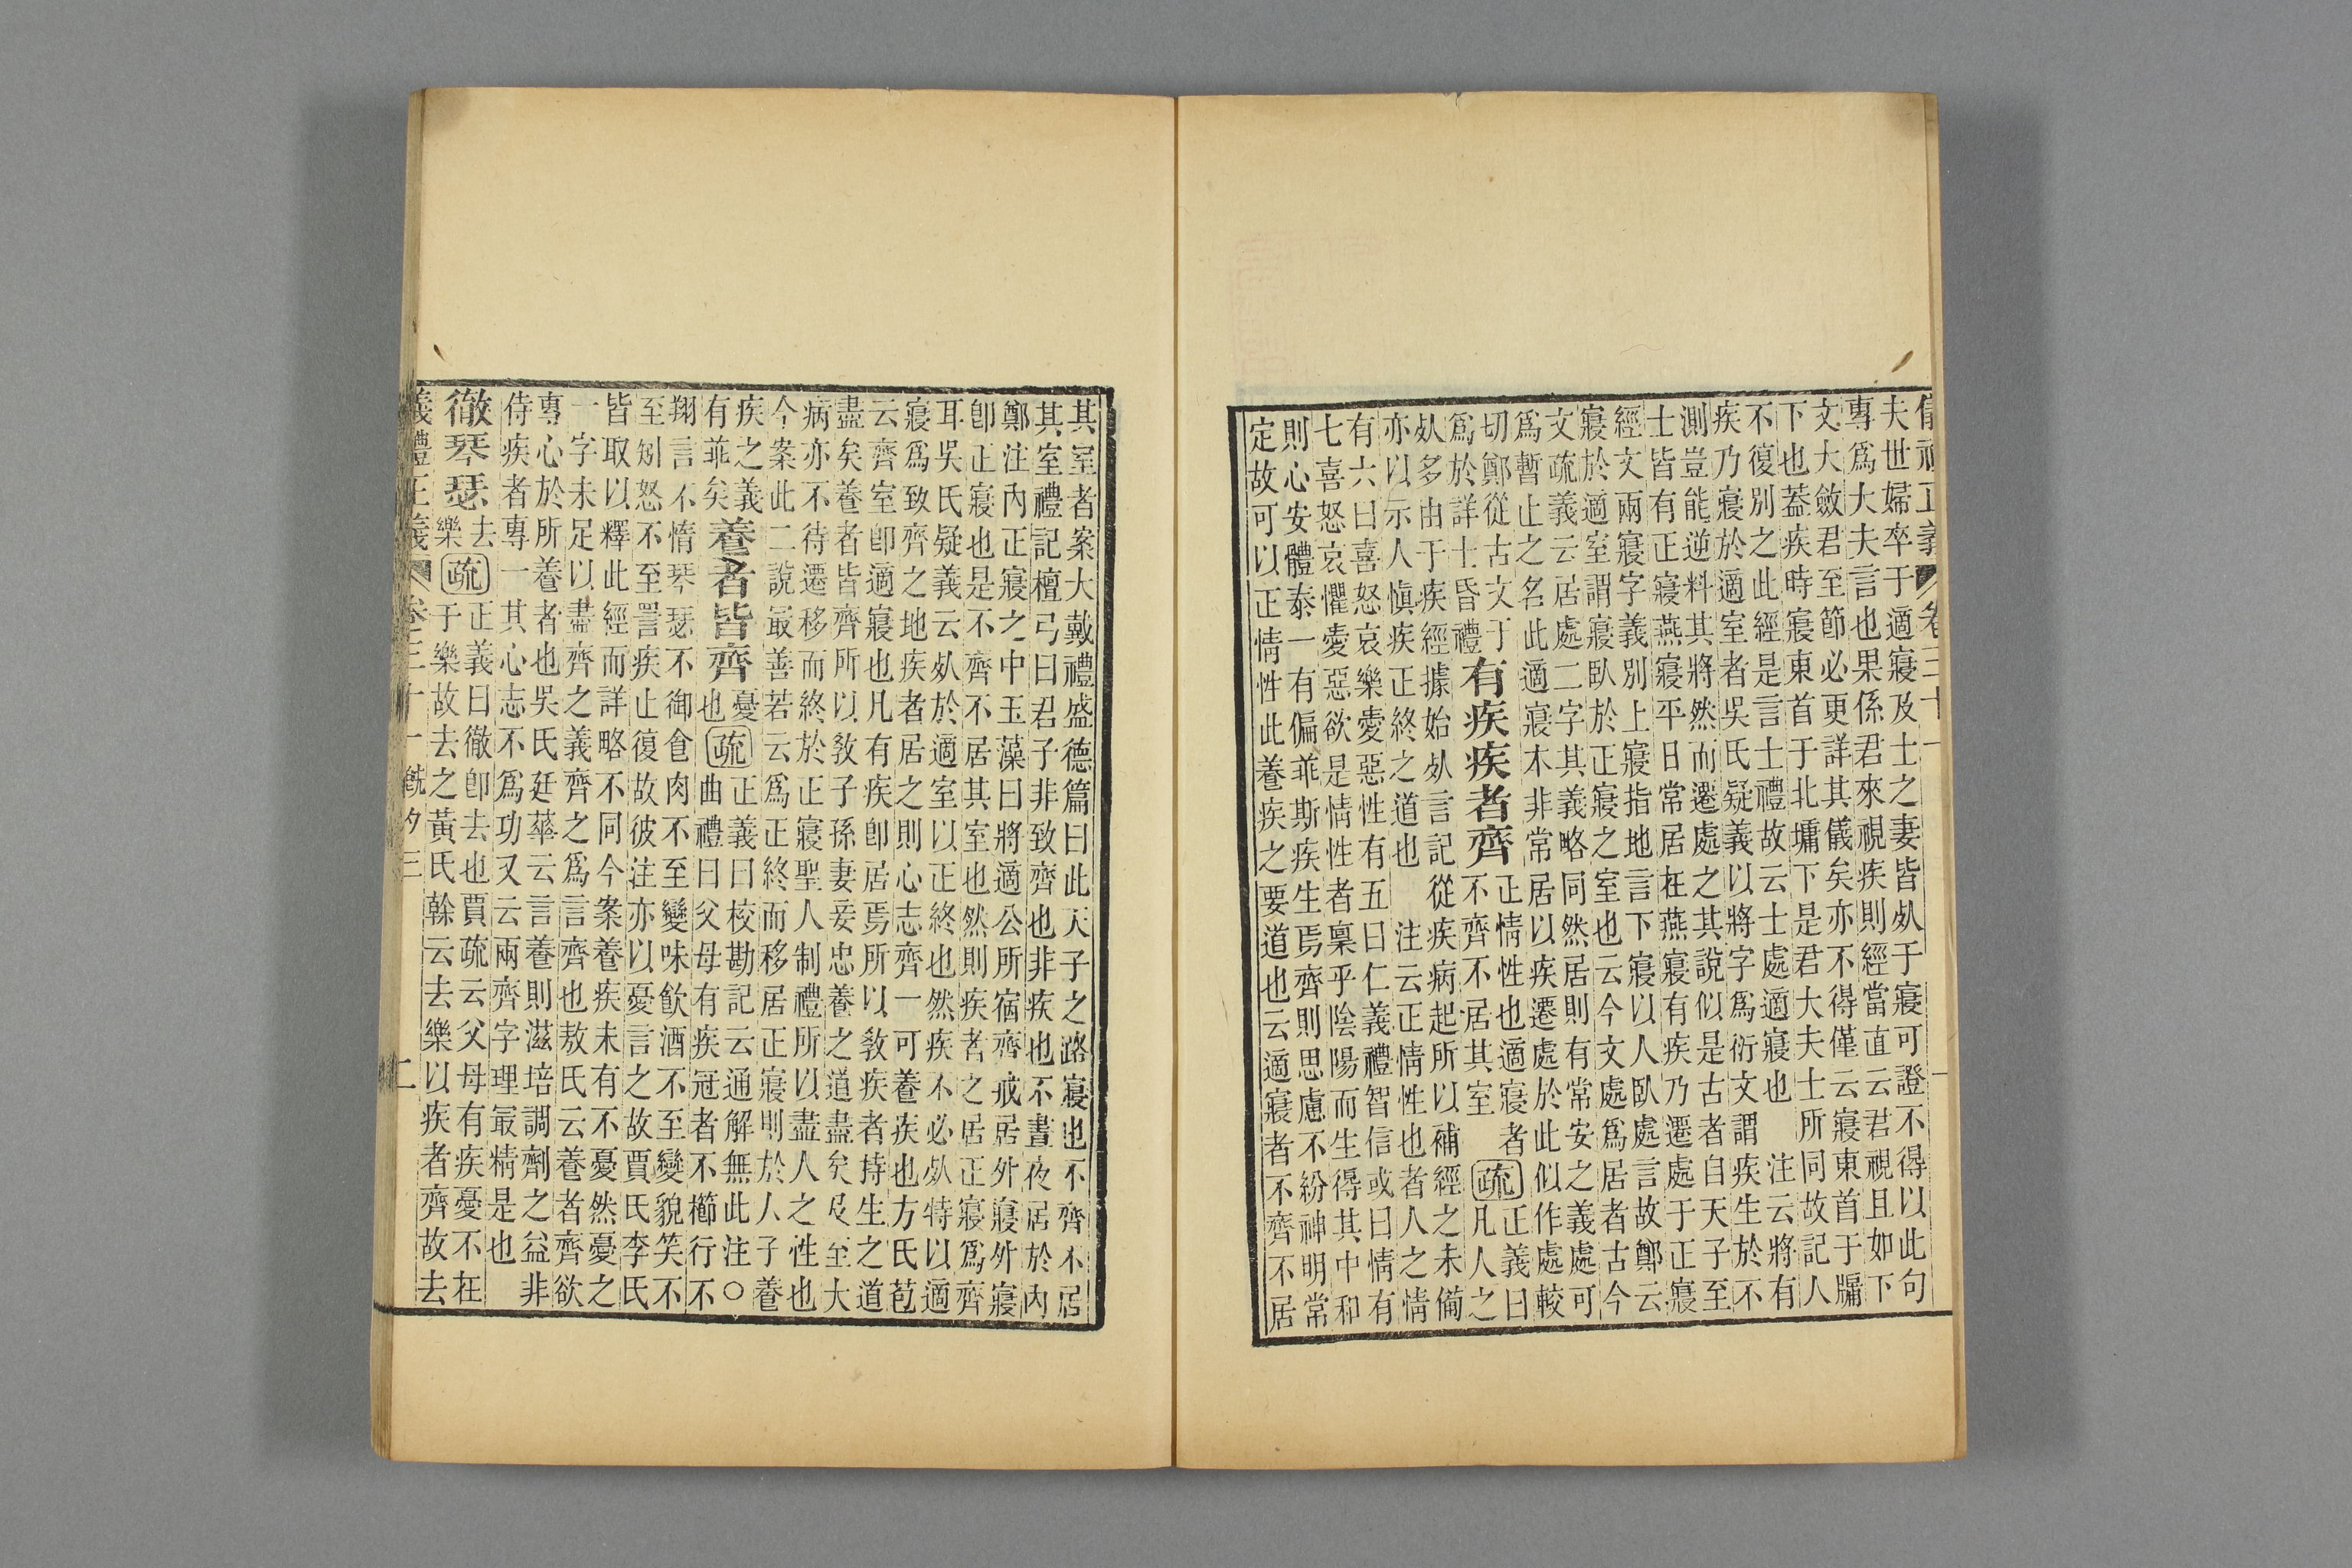 儀禮正義 卷三十一 一
夫世婦卒于適寢及士之妻皆𣦸于寢可證不得以此句
專爲大夫言也果係君來視疾則經當直云君視且如下
文大斂君至節必更詳其儀矣亦不得僅云寢東首于牖
下也葢疾時寢東首于北墉下是君大夫士所同故記人
不復別之此經是言士禮故云士處適寢也 注云將有
疾乃寢於適室者吳氏疑義以將字爲衍文謂疾生於不
測豈能逆料其將然而遷處之其說似是古者自天子至
士皆有正寢燕寢平日常居在燕寢有疾乃遷處于正寢
經文兩寢字義別上寢指地言下寢以人臥處言故鄭云
寢於適室謂寢臥於正寢之室也云今文處爲居者古今
文疏義云居處二字其義略同然居則有常安之義處可
爲暫止之名此適寢木非常居以疾遷處於此似作處較
切鄭從古文于
爲於詳士昏禮
有疾疾者齊
正情性也適寢者
不齊不居其室
疏
正義曰
凡人之
𣦸多由于疾經據始𣦸言記從疾病起所以補經之未備
亦以示人慎疾正終之道也 注云正情性也者人之情
有六曰喜怒哀樂愛惡性有五曰仁義禮智信或曰情有
七喜怒哀懼愛惡欲是情性者稟乎陰陽而生得其中和
則心安體泰一有偏乖斯疾生焉齊則思慮不紛神明常
定故可以正情性此養疾之要道也云適寢者不齊不居
其室者案大戴禮盛德篇曰此天子之路寢也不齊不居
其室禮記檀弓曰君子非致齊也非疾也不晝夜居於內
鄭注內正寢之中玉藻曰將適公所宿齊戒居外寢外寢
卽正寢也是不齊不居其室也然則疾者之居正寢爲齊
耳吳氏疑義云𣦸於適室以正終也然疾不必𣦸特以適
寢爲致齊之地疾者居之則心志齊一可養疾也方氏苞
云齊室卽適寢也凡有疾卽居焉所以敎疾者持生之道
盡矣養者皆齊所以敎子孫妻妾忠養之道盡矣及至大
病亦不待遷移而終於正寢聖人制禮所以盡人之性也
今案此二說最善若云爲正終而移居正寢則於人子養
疾之義
有乖矣
養者皆齊
憂
也
疏
正義曰校勘記云通解無此注○
曲禮曰父母有疾冠者不櫛行不
翔言不惰琴瑟不御食肉不至變味飮酒不至變貌笑不
至矧怒不至詈疾止復故彼注亦以憂言之故賈氏李氏
皆取以釋此經而詳略不同今案養疾未有不憂然憂之
一字未足以盡齊之義齊之爲言齊也敖氏云養者齊欲
專心於所養者也吳氏廷華云言養則滋培調劑之益非
侍疾者專一其心志不爲功又云兩齊字理最精是也
徹琴瑟
去
樂
疏
正義曰徹卽去也賈疏云父母有疾憂不在
于樂故去之黃氏榦云去樂以疾者齊故去
儀禮正義 卷三十一 旣夕三 二